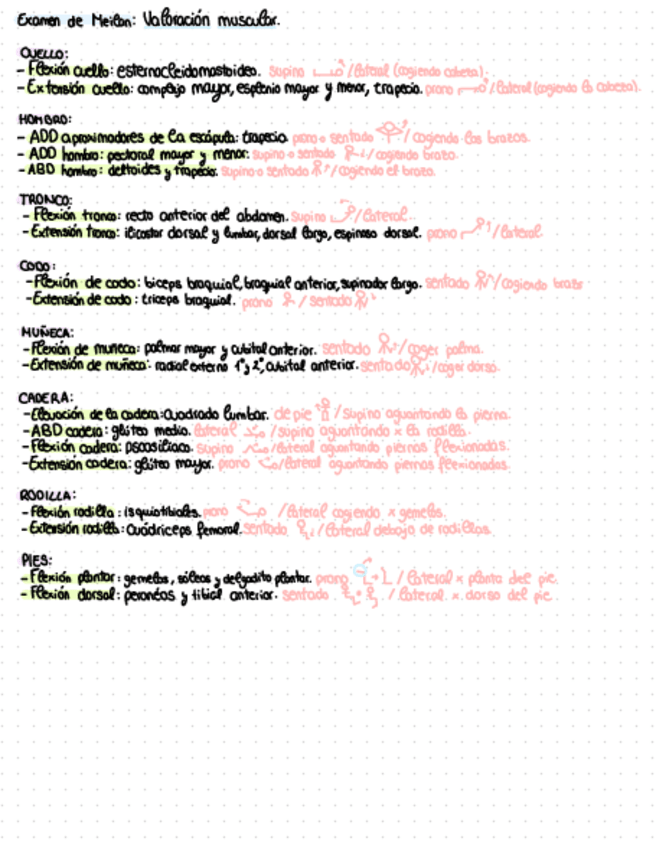 Examen de Meilon: Valoración muscular.
CUELLO:
- Flexión cuello: esternocleidomastoideo. supino /lateral (cogiendo cabeza).
- Extensión cuello: complejo mayor, esplenio mayor y menor, trapecio. prono /lateral (cogiendo la cabeza).
HOMBRO:
- ADD aproximadores de la escápula: trapecio. prono o sentado /cogiendo los brazos.
- ADD hombro: pectoral mayor y menor. supino o sentado /cogiendo brazo.
- ABD hombro: deltoides y trapecio. supino o sentado /cogiendo el brazo.
TRONCO:
- Flexión tronco: recto anterior del abdomen. supino /lateral.
- Extensión tronco: ilicostar dorsal y lumbar, dorsal largo, espinoso dorsal. prono /lateral.
CODO:
- Flexión de codo: biceps braquial, braquial anterior, supinador largo. sentado /cogiendo brazo
- Extensión de codo: triceps braquial. prono / sentado
MUÑECA:
- Flexión de muneca: palmar mayor y cubital anterior. sentado /coger palma.
- Extensión de muñeca: radial externo 1º y 2º, cubital anterior. sentado /coger dorso.
CADERA:
- Elevación de la cadera: cuadrado lumbar. de pie / supino aguantando la pierna.
- ABD cadera: glúteo medio. lateral /supino aguantando x la rodilla.
- Flexión cadera: psoasiliaco. supino /lateral aguantando piernas flexionadas.
- Extensión cadera: glúteo mayor. prono /lateral aguantando piernas flexionadas
RODILLA:
- Flexión rodilla: isquiotibiales. prono /lateral cogiendo x gemelos.
- Extensión rodilla: Cuádriceps femoral. sentado /lateral debajo de rodillas.
PIES:
- Flexión plantar: gemelos, sóleos y delgadito plantar. prono / lateral x planta del pie.
- Flexión dorsal: peronéos y tibial anterior. sentado / lateral x dorso del pie